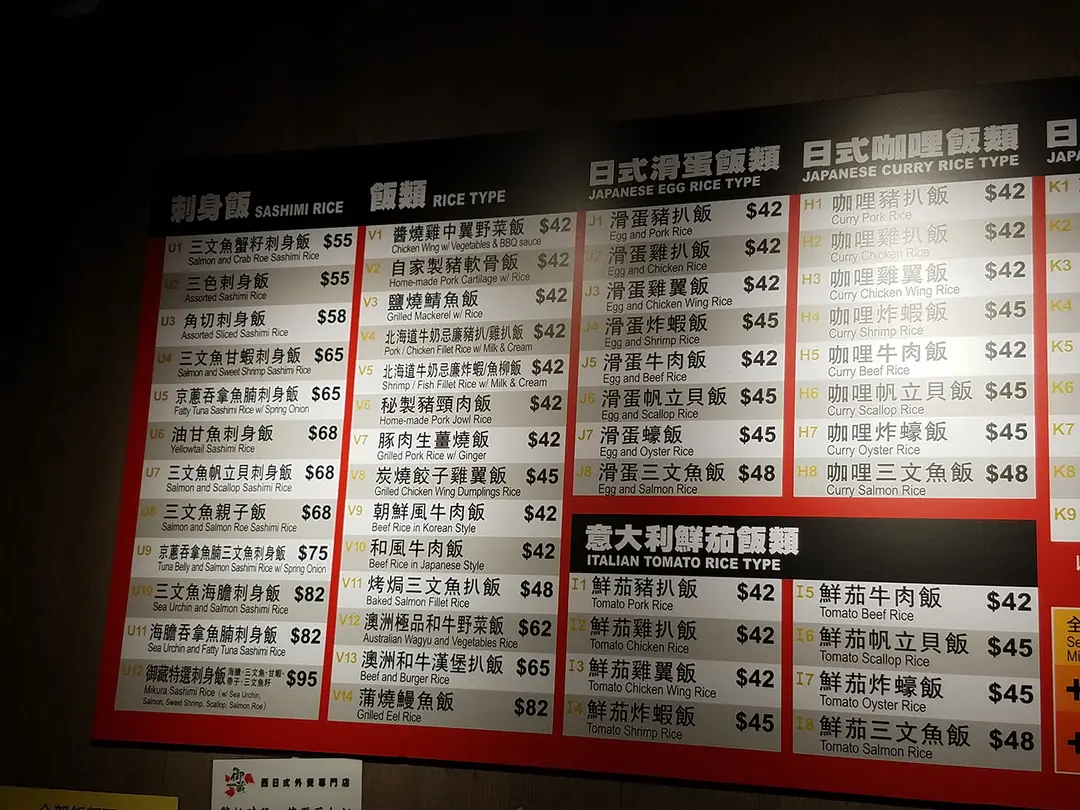 刺身飯 SASHIMI RICE
U1 三文魚蟹籽刺身飯 $55
Salmon and Crab Roe Sashimi Rice
U2 三色刺身飯 $55
Assorted Sashimi Rice
U3 角切刺身飯 $58
Assorted Sliced Sashimi Rice
U4 三文魚甘蝦刺身飯 $65
Salmon and Sweet Shrimp Sashimi Rice
U5 京蔥吞拿魚腩刺身飯 $65
Fatty Tuna Sashimi Rice w/ Spring Onion
U6 油甘魚刺身飯 $68
Yellowtail Sashimi Rice
U7 三文魚帆立貝刺身飯 $68
Salmon and Scallop Sashimi Rice
U8 三文魚親子飯 $68
Salmon and Salmon Roe Sashimi Rice
U9 京蔥吞拿魚腩三文魚刺身飯 $75
Tuna Belly and Salmon Sashimi Rice w/ Spring Onion
U10 三文魚海膽刺身飯 $82
Sea Urchin and Salmon Sashimi Rice
U11 海膽吞拿魚腩刺身飯 $82
Sea Urchin and Fatty Tuna Sashimi Rice
U12 御藏特選刺身飯 海膽·三文魚·甘蝦·帶子·三文魚籽 $95
Mikura Sashimi Rice (w/ Sea Urchin,
Salmon, Sweet Shrimp, Scallop, Salmon Roe)
飯類 RICE TYPE
V1 醬燒雞中翼野菜飯 $42
Chicken Wing w/ Vegetables & BBQ sauce
V2 自家製豬軟骨飯 $42
Home-made Pork Cartilage w/ Rice
V3 鹽燒鯖魚飯 $42
Grilled Mackerel w/ Rice
V4 北海道牛奶忌廉豬扒/雞扒飯 $42
Pork / Chicken Fillet Rice w/ Milk & Cream
V5 北海道牛奶忌廉炸蝦/魚柳飯 $42
Shrimp / Fish Fillet Rice w/ Milk & Cream
V6 秘製豬頸肉飯 $42
Home-made Pork Jowl Rice
V7 豚肉生薑燒飯 $42
Grilled Pork Rice w/ Ginger
V8 炭燒餃子雞翼飯 $45
Grilled Chicken Wing Dumplings Rice
V9 朝鮮風牛肉飯 $42
Beef Rice in Korean Style
V10 和風牛肉飯 $42
Beef Rice in Japanese Style
V11 烤焗三文魚扒飯 $48
Baked Salmon Fillet Rice
V12 澳洲極品和牛野菜飯 $62
Australian Wagyu and Vegetables Rice
V13 澳洲和牛漢堡扒飯 $65
Beef and Burger Rice
V14 蒲燒鰻魚飯 $82
Grilled Eel Rice
日式滑蛋飯類
JAPANESE EGG RICE TYPE
J1 滑蛋豬扒飯 $42
Egg and Pork Rice
J2 滑蛋雞扒飯 $42
Egg and Chicken Rice
J3 滑蛋雞翼飯 $42
Egg and Chicken Wing Rice
J4 滑蛋炸蝦飯 $45
Egg and Shrimp Rice
J5 滑蛋牛肉飯 $42
Egg and Beef Rice
J6 滑蛋帆立貝飯 $45
Egg and Scallop Rice
J7 滑蛋蠔飯 $45
Egg and Oyster Rice
J8 滑蛋三文魚飯 $48
Egg and Salmon Rice
日式咖哩飯類
JAPANESE CURRY RICE TYPE
H1 咖哩豬扒飯 $42
Curry Pork Rice
H2 咖哩雞扒飯 $42
Curry Chicken Rice
H3 咖哩雞翼飯 $42
Curry Chicken Wing Rice
H4 咖哩炸蝦飯 $45
Curry Shrimp Rice
H5 咖哩牛肉飯 $42
Curry Beef Rice
H6 咖哩帆立貝飯 $45
Curry Scallop Rice
H7 咖哩炸蠔飯 $45
Curry Oyster Rice
H8 咖哩三文魚飯 $48
Curry Salmon Rice
意大利鮮茄飯類
ITALIAN TOMATO RICE TYPE
I1 鮮茄豬扒飯 $42
Tomato Pork Rice
I2 鮮茄雞扒飯 $42
Tomato Chicken Rice
I3 鮮茄雞翼飯 $42
Tomato Chicken Wing Rice
I4 鮮茄炸蝦飯 $45
Tomato Shrimp Rice
I5 鮮茄牛肉飯 $42
Tomato Beef Rice
I6 鮮茄帆立貝飯 $45
Tomato Scallop Rice
I7 鮮茄炸蠔飯 $45
Tomato Oyster Rice
I8 鮮茄三文魚飯 $48
Tomato Salmon Rice
日
JAPA
K1
K2
K3
K4
K5
K6
K7
K8
K9
全
Se
Mi
御藏 西日式外賣專門店